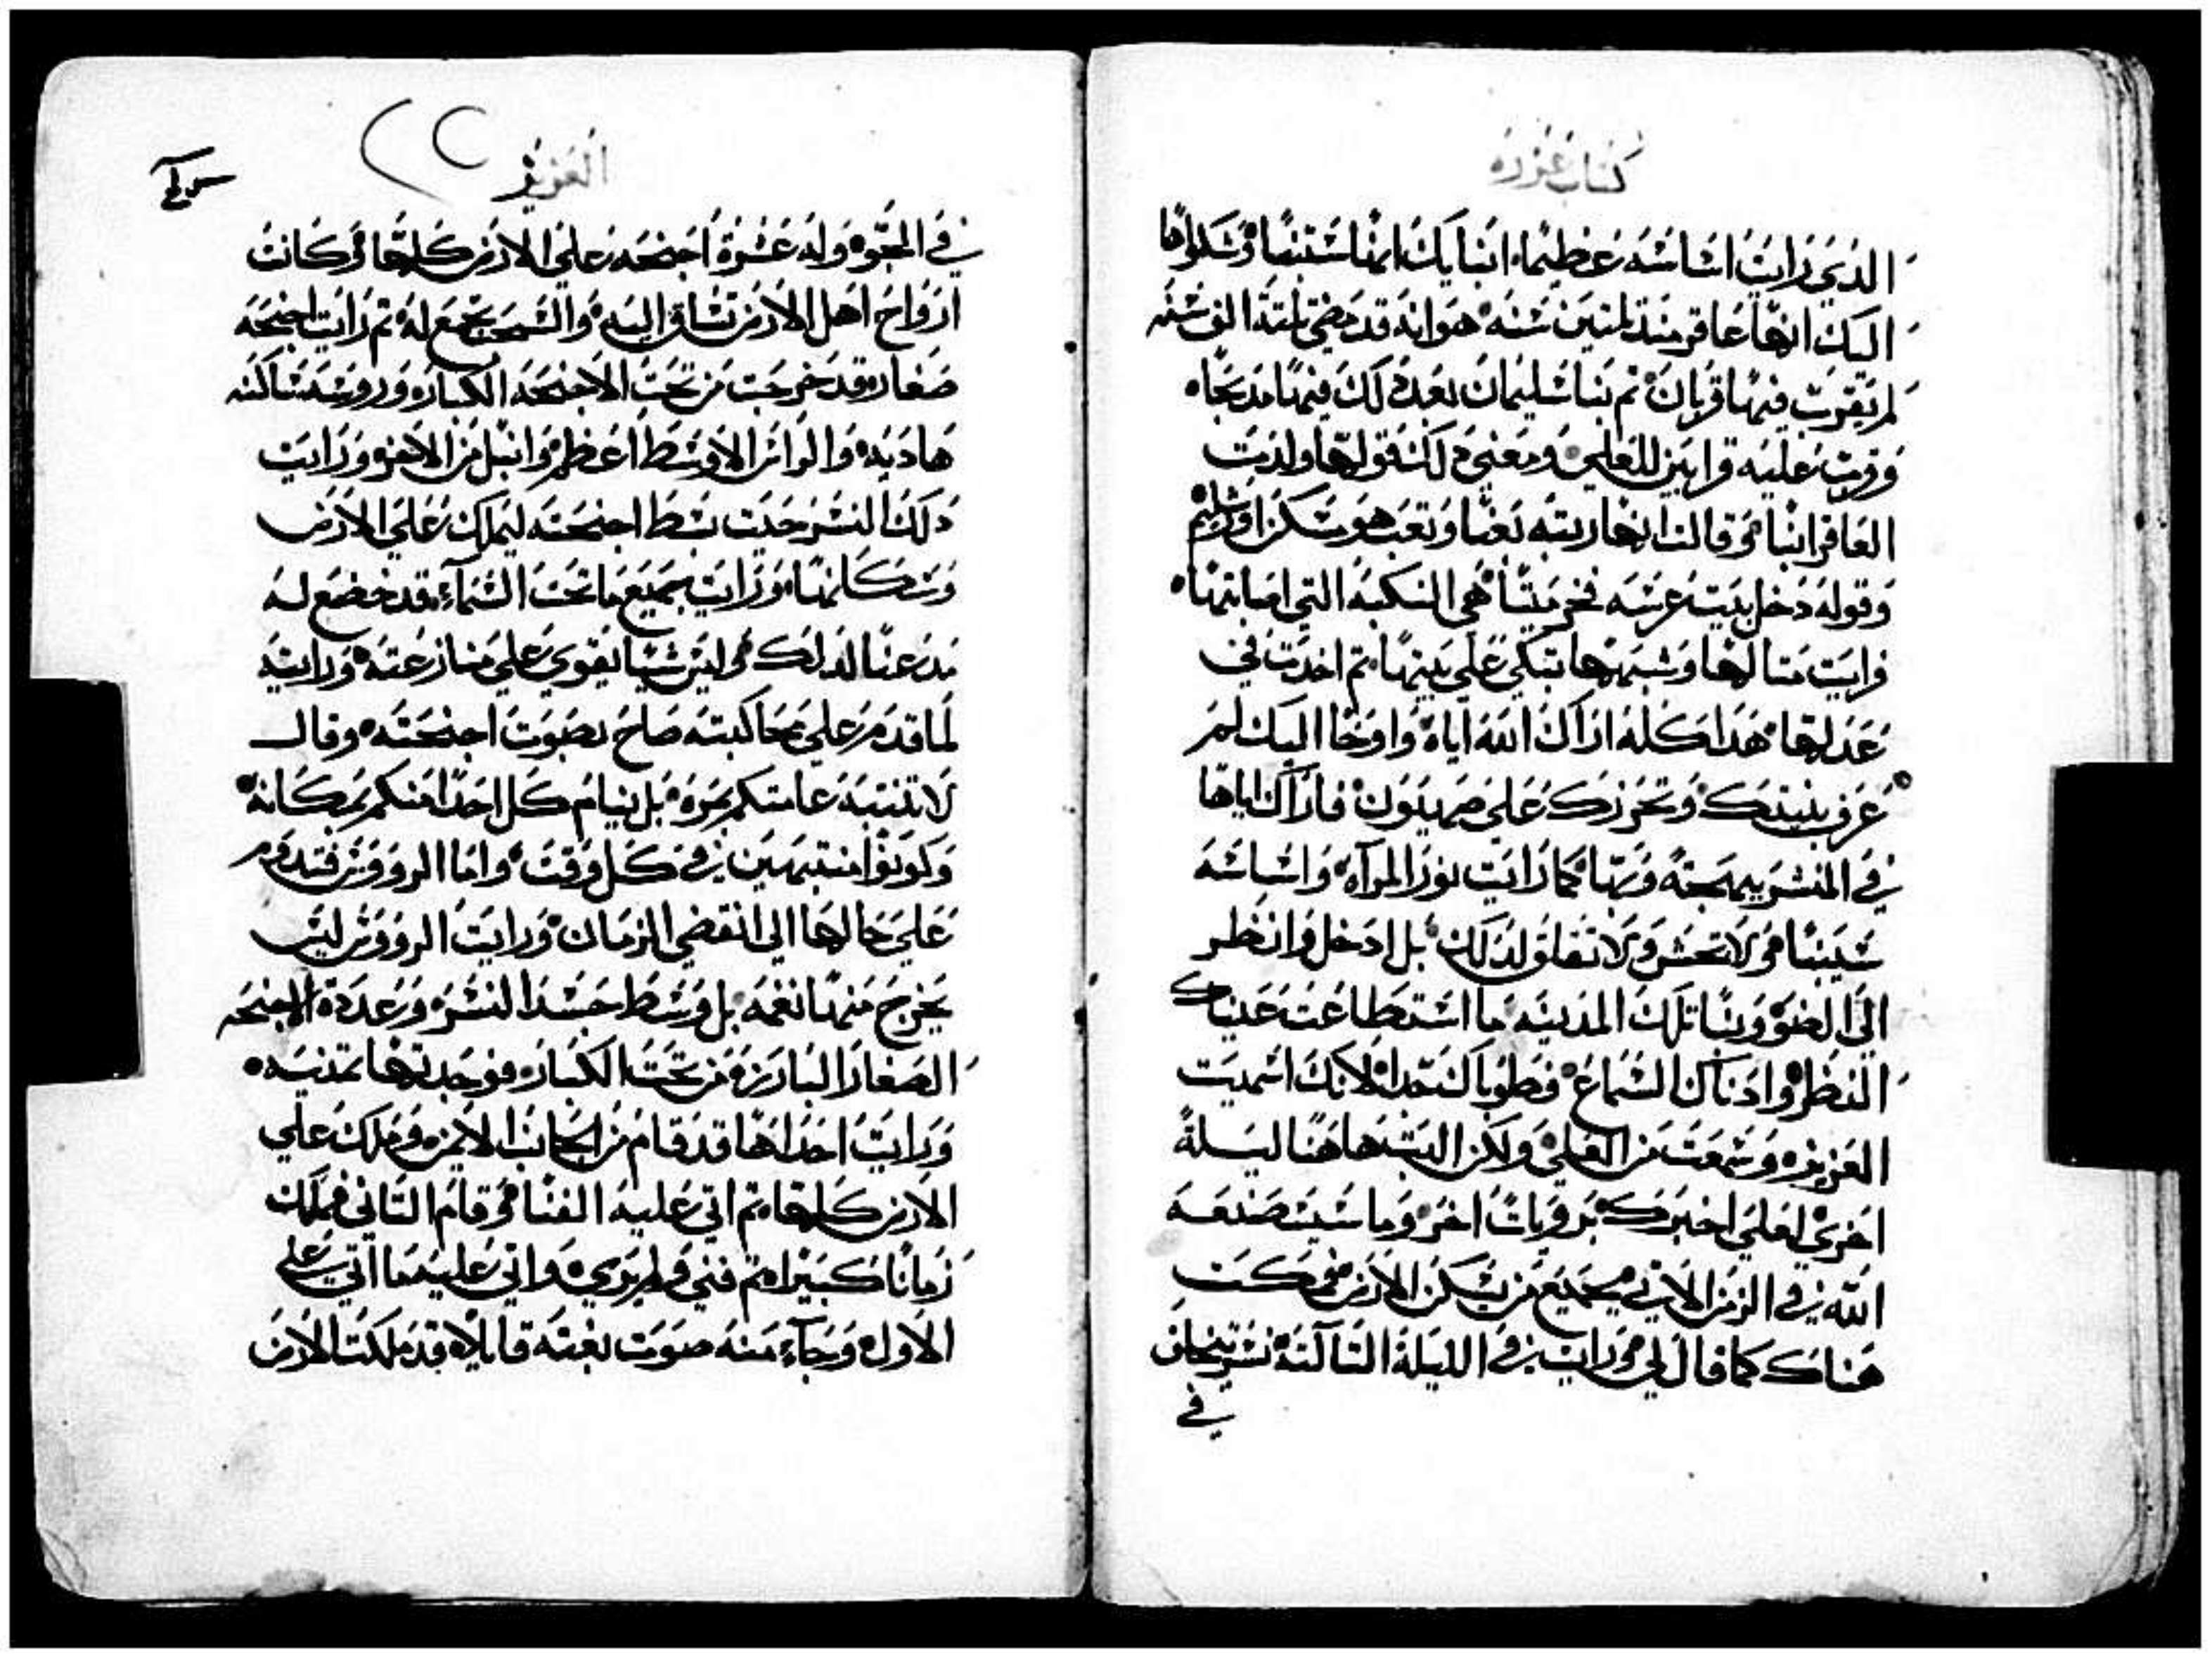 كتاب عزره
الذي رايت اساسه عظيما انبايك ايضا ستبنا وشكواها
اليك انها عاقر منذ تلتين سنه هوانه قد مضي تلتة الف سنه
لم يتقرب فيها قربان ثم بنا سليمان بعد دلك فيها مدبحا
وقرب عليه قرابين للعلي ومعني دلك قولها ولدت
العاقر ابنا وقالت انها ربته بعنا وتعب هو سكن اورشليم
وقوله دخل بيت عرسه فخر ميتا هي النكبه التي اصابتها
ورايت متالها وشبهها تبكي علي بنيها تم اخدت في
عدلها هدا كله اراك الله اياه واوحا اليك لم
عرف بنيتك وتحزنك علي صهيون فاراك اياها
في المنسر بهجته وربها كما رايت نور المراه واساسه
شيبا ولا تخش ولا تقلق لدلك بل ادخل وانظر
الي الضو وبنا تلك المدينه ما استطاعت عيناك
النظر وادناك السماع فطوباك نتحدا لانك اسميت
العزيز وسمعت من العلي ولكن البت هاهنا ليلة
اخري لعلي اخبرك بروايات اخر وما شيت صنعه
الله في الزمن الاتي بجميع من يسكن الارض فمكت
هناك كما قال لي ورايت في الليلة التالتة نسر بنجاحان
في
العزيز
في الجو وله عشرة اجنحه علي الارض كلها وكانت
ارواح اهل الارض تساق اليه والسحب تجمع له تم رايت اجنحه
صغار قد خرجت من تحت الاجنحه الكبار وروسه ساكنه
هاديه والراس الاوسط اعظم وانبل من الاخر ورايت
دلك النسر حيت بسط اجنحته ليملك علي الارض
وسكانها ورايت جميع ما تحت السماء قد خضع له
مدعنا لدلك وليس شيا يقوي علي منازعته ورايته
لما قدم علي محاكبته صاح بصوت اجنحته وقال
لا تنتبه عامتكم بمره بل ينام كل احدا منكم بمكانه
وكونوا منتبهين في كل وقت واما الرووس فتدوم
علي حالها الي انقضي الزمان ورايت الرووس ليس
يخرج منها نغمه بل وسط جسد النسر وعددة الاجنحه
الصغار البارزه من تحت الكبار فوجدتها تمنيه
ورايت احداها قد قام من الجانب الايمن وملك علي
الارض كلها تم اتي عليه الفنا وقام التاني فملك
زمانا كبيرا تم فني ولم يري واتي عليه ما اتي علي
الاول وجاء منه صوت بغته قايلا قد ملكت الارض